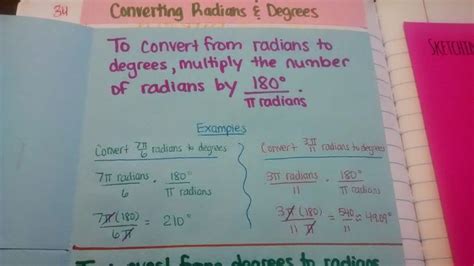 34
Converting Radians & Degrees
To convert from radians to
degrees, multiply the number
of radians by 180° / π radians.
Examples
Convert 7π/6 radians to degrees
7π radians / 6 · 180° / π radians
7π(180) / 6π = 210°
Convert 3π/11 radians to degrees
3π radians / 11 · 180° / π radians
3π(180) / 11π = 540/11 ≈ 49.09°
from degrees to radians
SKETCHIN